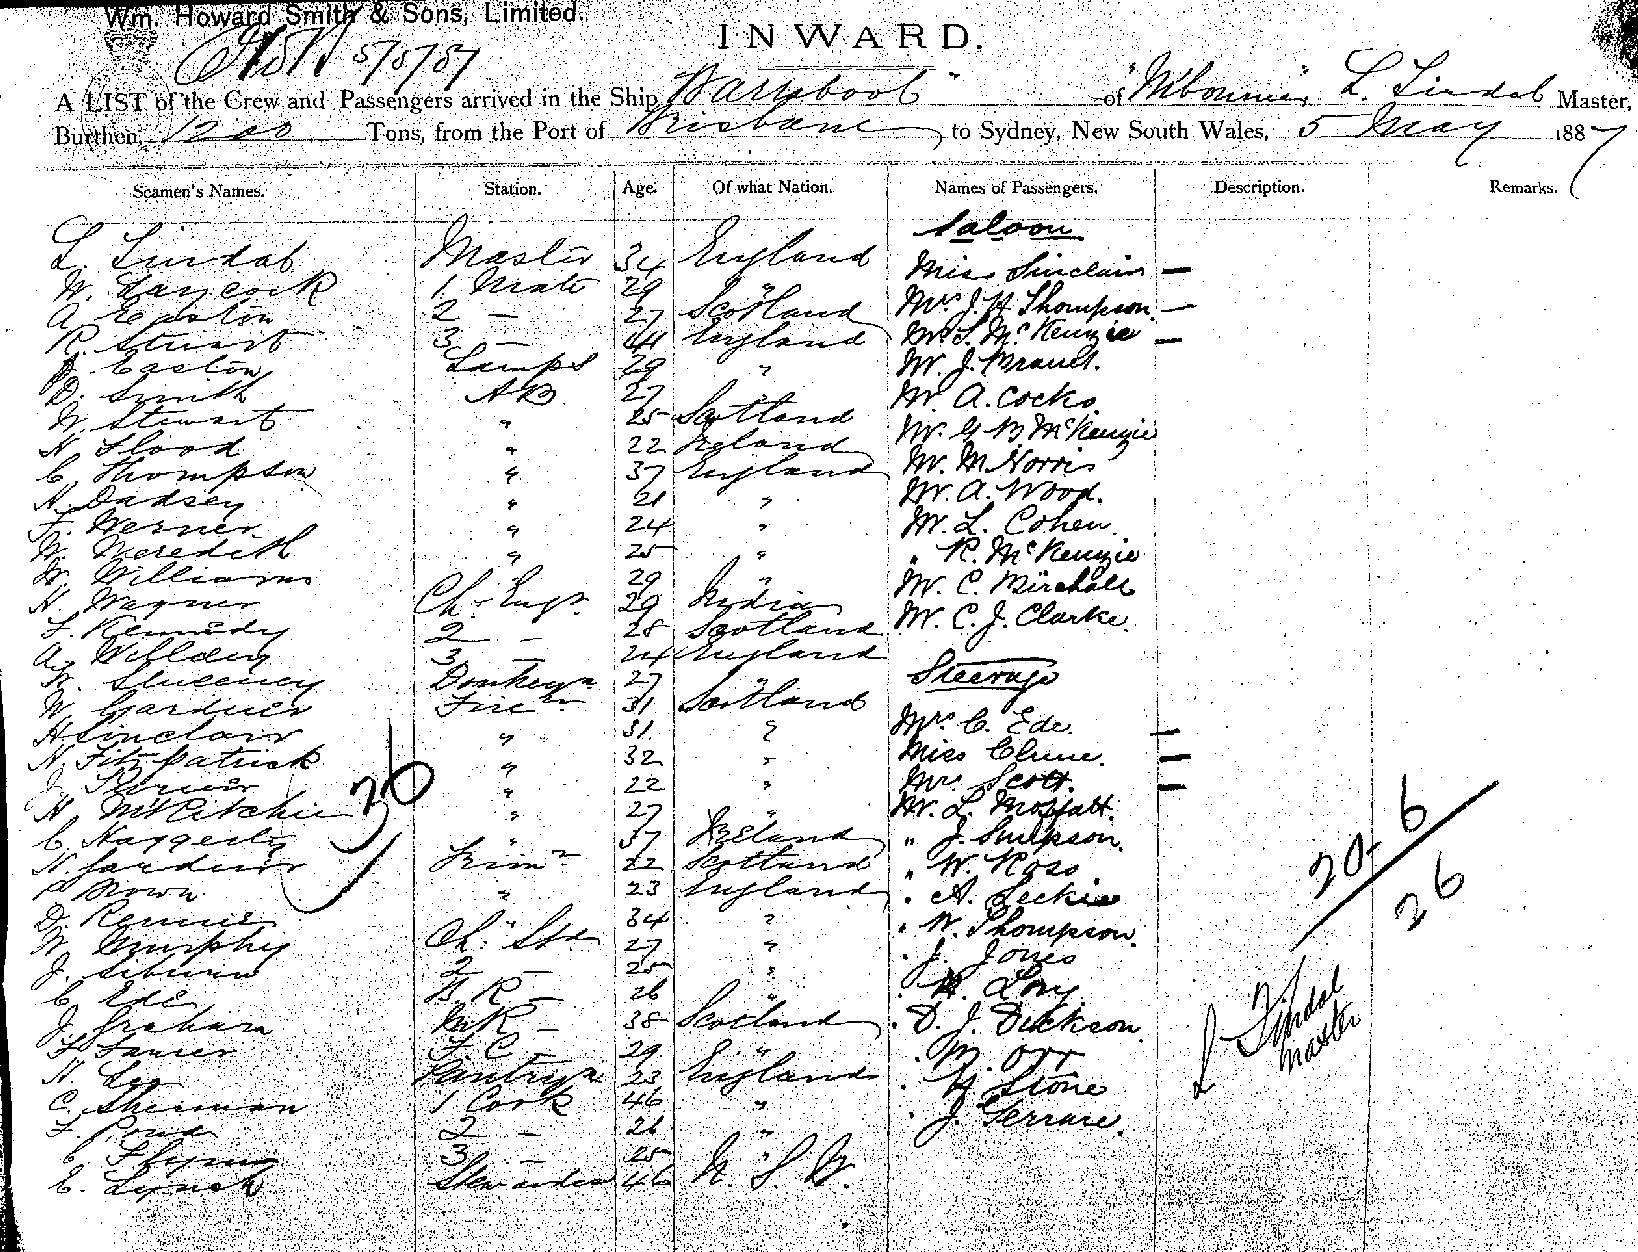 Wm. Howard Smith & Sons, Limited.
5/5/87
INWARD.
A LIST of the Crew and Passengers arrived in the Ship "Warrnbool" of "Mlbourne", L. Lindal Master,
Burthen, 1200 Tons, from the Port of Brisbane, to Sydney, New South Wales, 5 May 1887
Seamen's Names. Station. Age. Of what Nation. Names of Passengers. Description. Remarks.
Saloon
L. Lindal Master 34 England Miss Sinclair —
W. Haycock 1 Mate 29 " Mrs. J. H. Thompson —
A. Easton 2 — 27 Scotland McKenzie —
R. Stuart 3 — 44 England Mr. J.
Easton Lamps 29 " Mr. A. Cocks.
D. Smith AB 27 " Mr. G B McKenzie
W. Stewart " 25 Scotland Mr. M Norris
N Flood " 22 Ireland Mr. A. Wood.
C. Thompson " 37 England Mr. L. Cohen
H. Dadsey " 21 " " R. McKenzie
F. Werner " 24 " Mr. C.
W. Meredith " 25 " Mr. C. J. Clarke.
W. Williams 29 "
H. Wagner Ch. Engr. 29 India
F. Kennedy 2 — 28 Scotland
A. 3 — 24 England Steerage
W. Sweeney Donkeyn 27 "
W. Gardner Firen 31 Scotland Mrs C. Ede. —
H Sinclair " 31 " Miss Clune. —
N. Fitzpatrick " 32 " Mrs. Scott. —
J. " 22 " Mr. L. Moffatt.
H McRitchie " 27 " " J. Simpson.
C. Haggerty " 37 Ireland " W. Ross
N. Gardiner Trimr 22 Scotland " A. Leckie
P Brown " 23 England " W. Thompson.
D. Rennie " 34 " " J. Jones
W. Murphy Ch. Std 27 " " Lory
J. 2 — 25 " " D. J. Dickson.
C. Ede — 26 " " M. Orr
J. Graham — 38 Scotland " Stone
— 29 " " J. Terrare.
N. Lee Pantryn 23 England
C. Sherman 1 Cook 46 "
F. 2 — 26 "
3 — 25 "
C. Lynch Stewardess 46 N. S. W.
36
20 6
26
L Lindal
Master